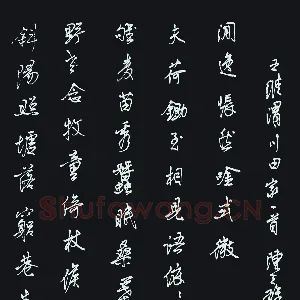 斜陽照墟落窮巷
野老念牧童倚杖候
雊麥苗秀蠶眠桑葉
夫荷鋤至相見語依
閒逸悵然吟式微
王維渭川田家一首
Shufawang.CN